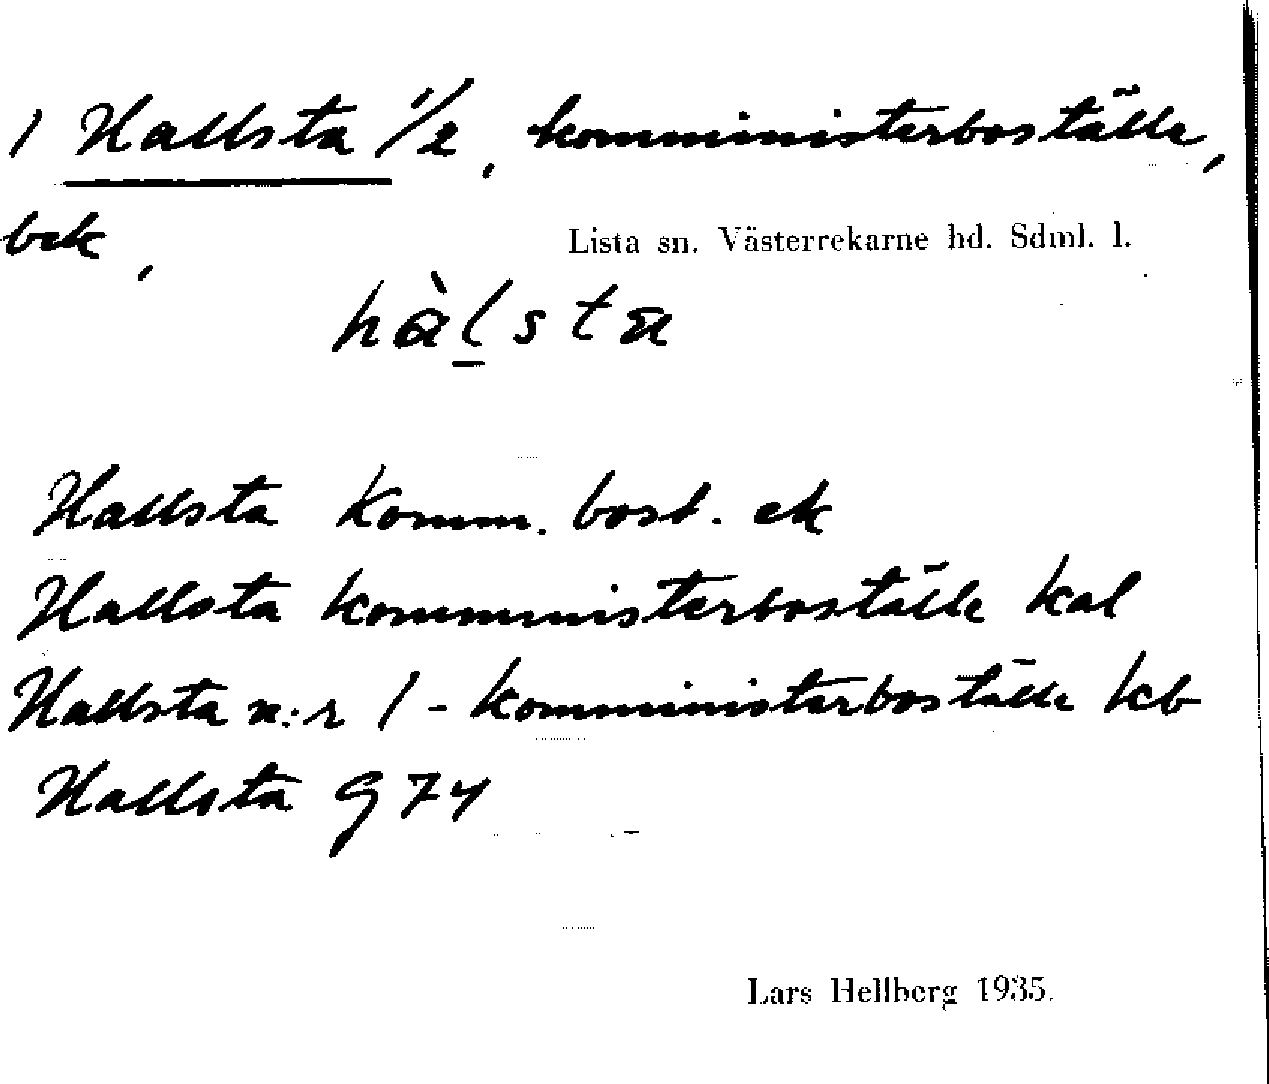 1 Hallsta 1/2, komministerboställe,
bck,
Lista sn. Västerrekarne hd. Sdml. l.
hàlsta
Hallsta Komm. bost. ek
Hallsta komministerboställe kal
Hallsta n:r 1 - komministerboställe kb
Hallsta G 74
Lars Hellberg 1935.